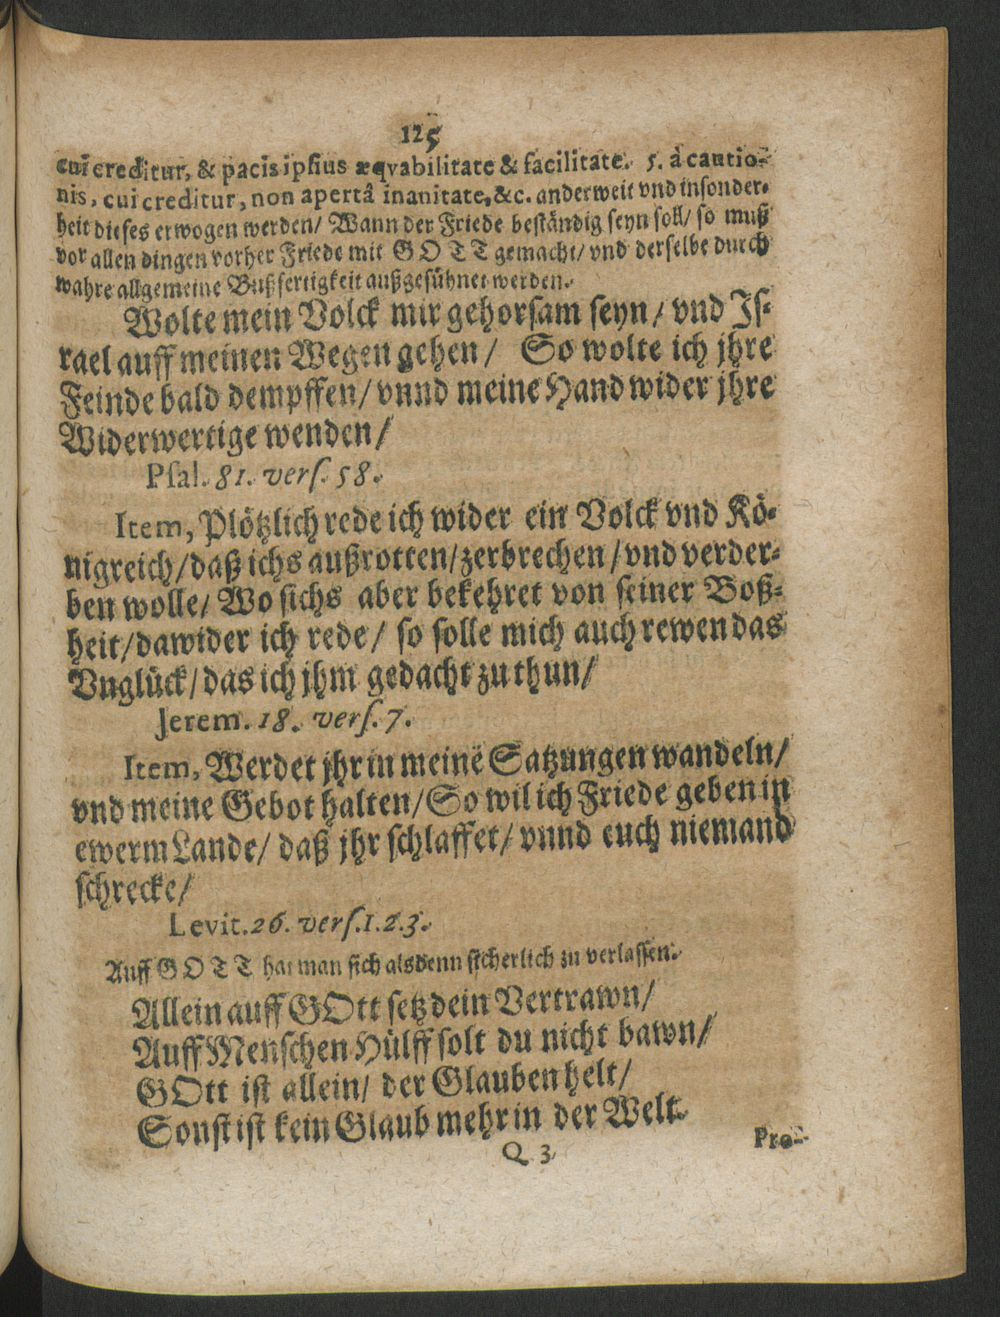 125
cui creditur, & pacis ipsius æqvabilitate & facilitate. 5. à cautio-
nis, cui creditur, non apertâ inanitate, &c. anderweit vnd insonder-
heit dieses erwogen werden/ Wann der Friede beständig seyn soll/ so muß
vor allen dingen vorher Friede mit GOTT gemacht/ vnd derselbe durch
wahre allgemeine Bußfertigkeit außgesühnet werden.
Wolte mein Volck mir gehorsam seyn/ vnd Is-
rael auff meinen Wegen gehen/ So wolte ich jhre
Feinde bald dempffen/ vnnd meine Hand wider jhre
Widerwertige wenden/
Psal. 81. vers. 58.
Item, Plötzlich rede ich wider ein Volck vnd Kö-
nigreich/ daß ichs außrotten/ zerbrechen/ vnd verder-
ben wolle/ Wo sichs aber bekehret von seiner Boß-
heit/ dawider ich rede/ so solle mich auch rewen das
Vnglück/ das ich jhm gedacht zu thun/
Jerem. 18. vers. 7.
Item, Werdet jhr in meine Satzungen wandeln/
vnd meine Gebot halten/ So wil ich Friede geben in
ewerm Lande/ daß jhr schlaffet/ vnnd euch niemand
schrecke/
Levit. 26. vers. 1. 2. 3.
Auff GOTT hat man sich alsdenn sicherlich zu verlassen.
Allein auff GOtt setz dein Vertrawn/
Auff Menschen Hülff solt du nicht bawn/
GOtt ist allein/ der Glauben helt/
Sonst ist kein Glaub mehr in der Welt.
Q 3
Pro-